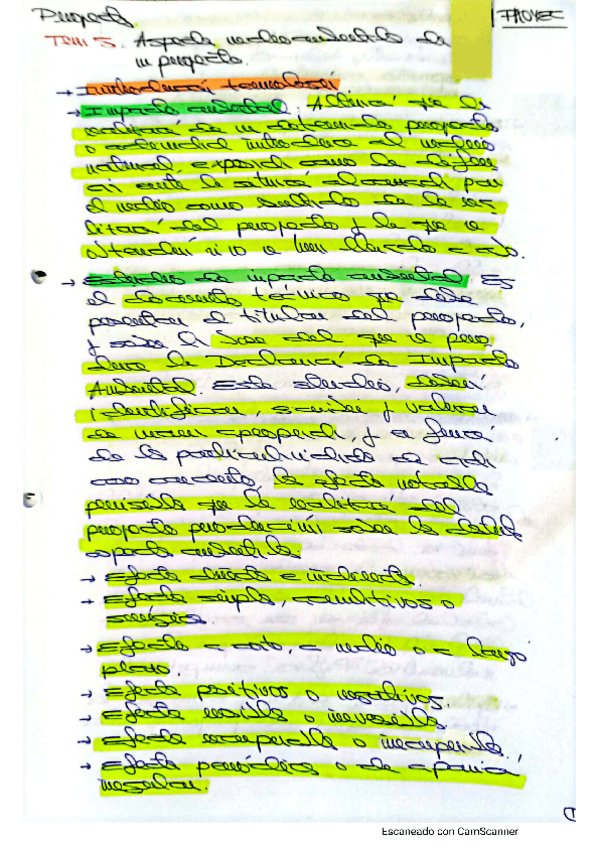 Proyectos
PROYEC
Tema 5. Aspectos medioambientales de
un proyecto.
→ Introducción
→ Impacto ambiental. Alteración que la
realización de un determinado proyecto
o actividad introduce en el medio
natural expresada como la diferen
cia entre la situación
el medio como resultado de la rea
lización del proyecto y la que se
obtendría si no se lleva a cabo.
→ Estudio de impacto ambiental. Es
el documento técnico que debe
presentar el titular del proyecto,
y sobre la base del que se pro
duce la Declaración de Impacto
Ambiental. Este estudio, deberá
identificar, y valorar
de manera apropiada, y en función
de las particularidades de cada
caso concreto, los efectos notables
previsibles que la realización del
proyecto produciría sobre los
aspectos ambientales.
→ Efectos directos e indirectos.
→ Efectos simples, acumulativos o
sinérgicos.
→ Efectos a corto, a medio o a largo
plazo.
→ Efectos positivos o negativos.
→ Efectos reversibles o irreversibles.
→ Efectos recuperables o irrecuperables.
→ Efectos periódicos o de aparición
irregular.
1
Escaneado con CamScanner